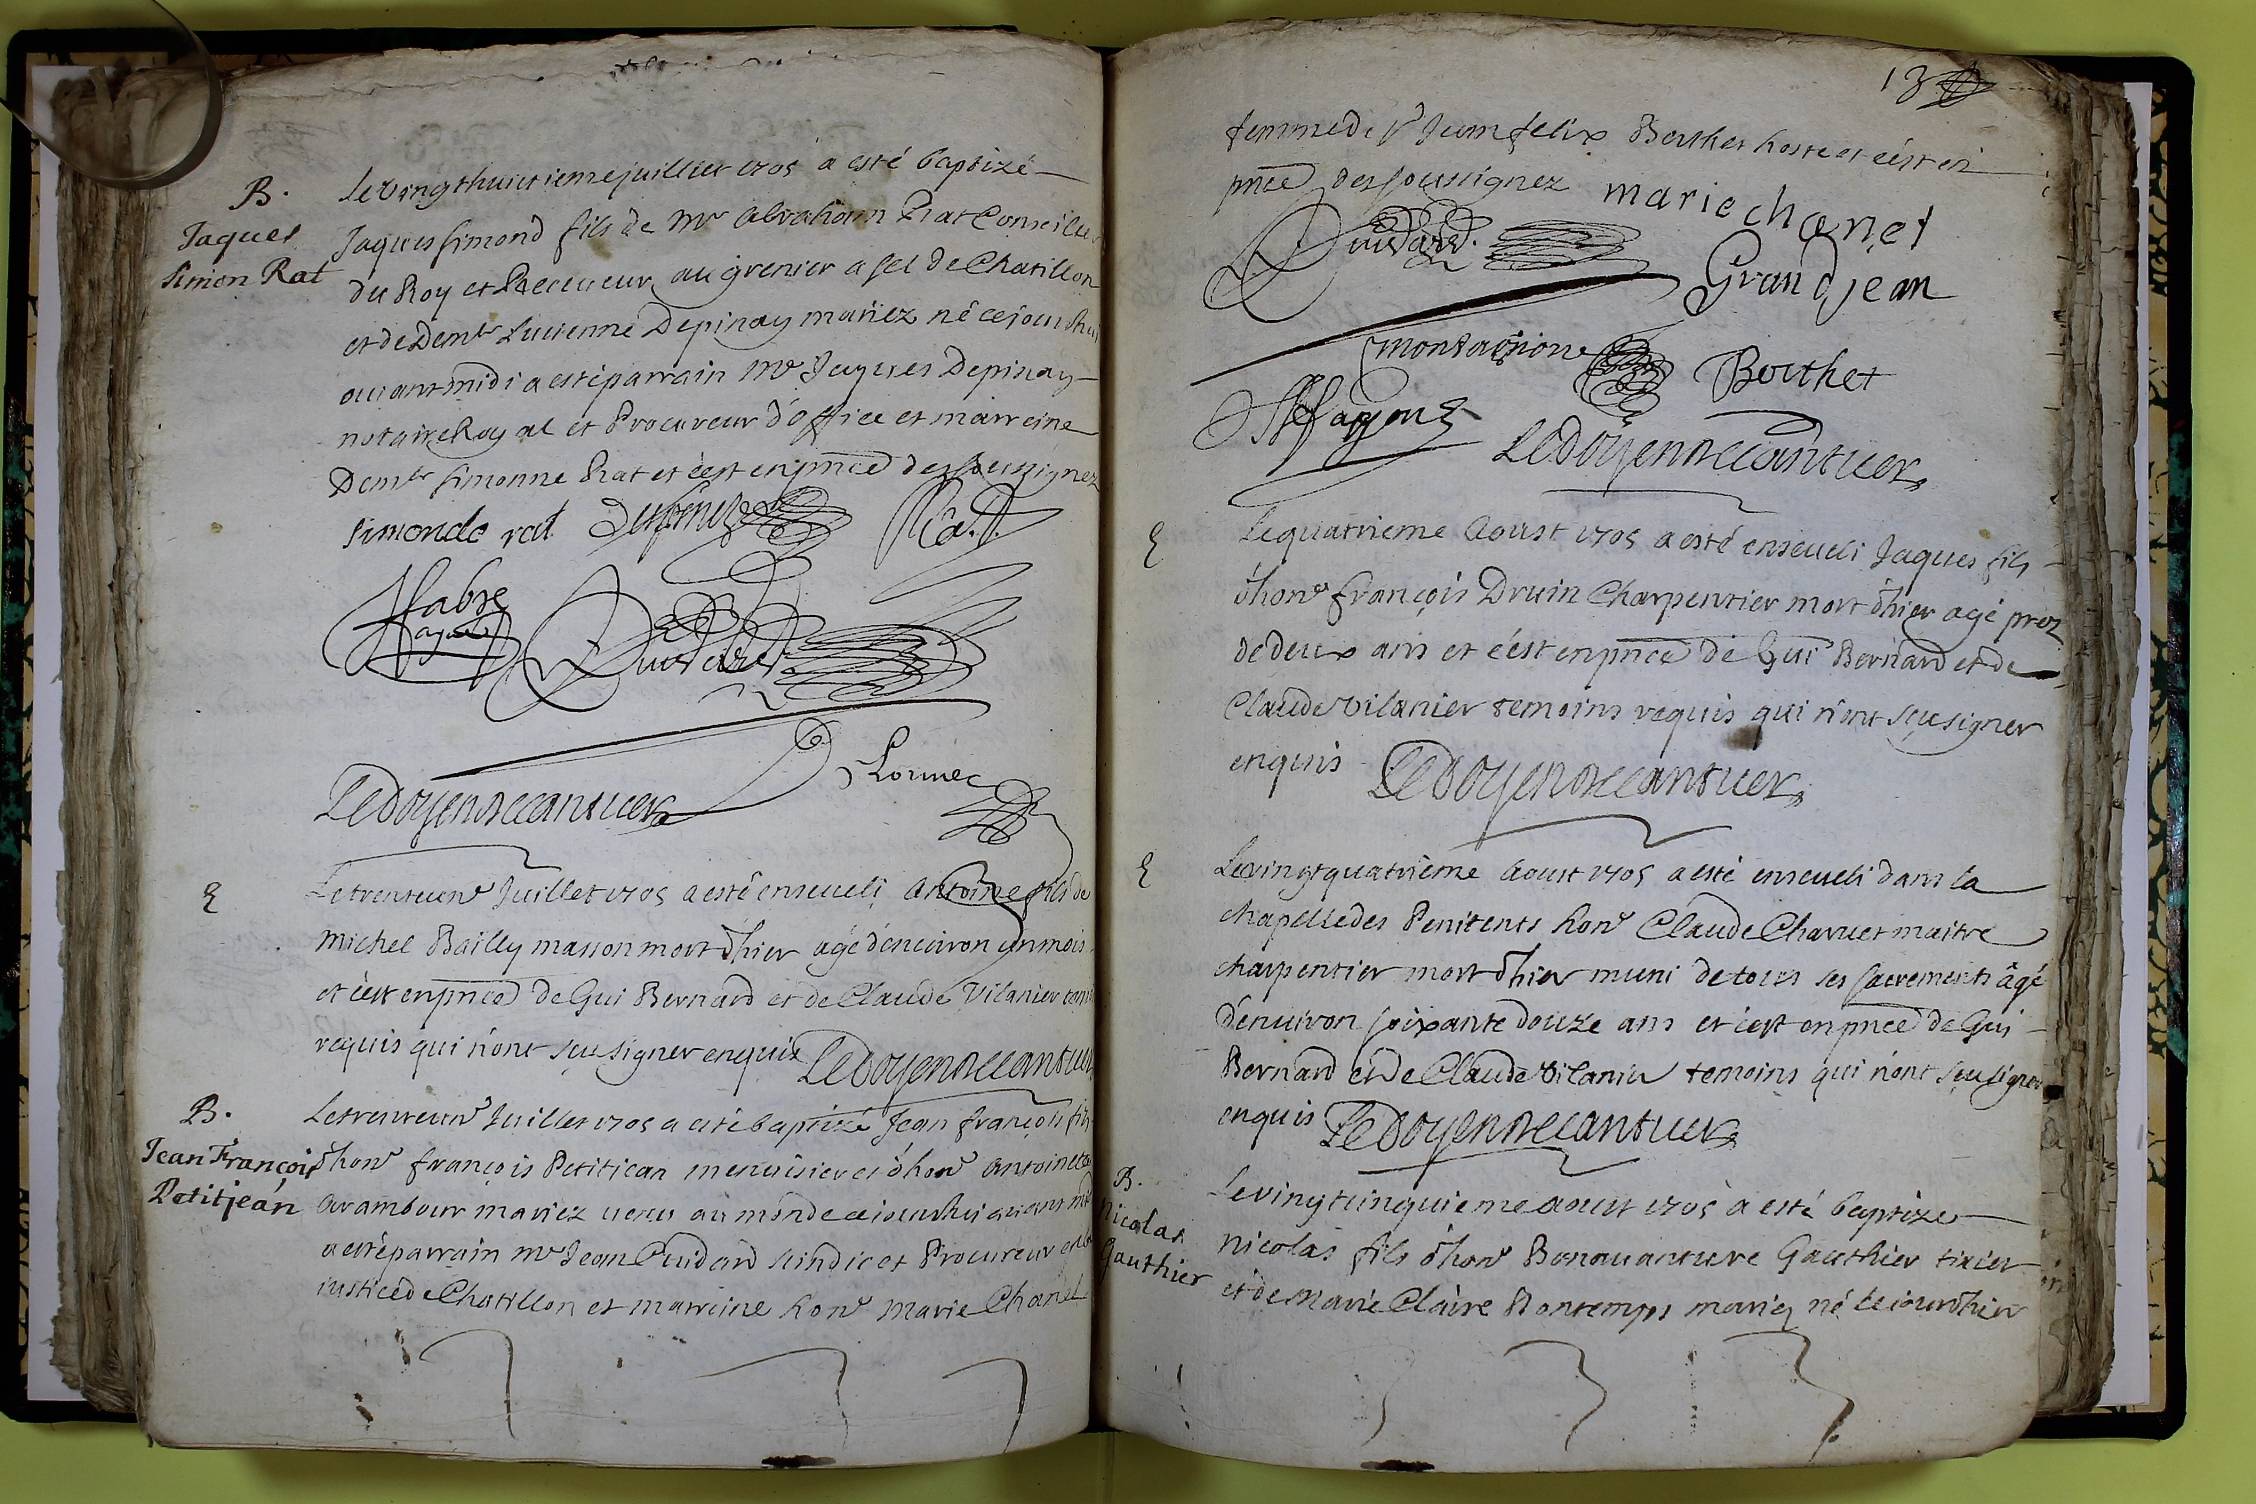 B.
Jaques
Simon Rat
Le vingthuictieme juillier 1705 a esté baptizé
Jaques simond fils de Mr Abraham Rat Conseiller
du Roy et Receueur au grenier a sel de Chatillon
et de Demlle Lucienne Depinay mariez né ce jourdhuy
auant midi a esté parrain Mr Jaques Depinay
notaire Royal et Procureur d'Office et marreine
Demlle simonne Rat et c'est en pnce des soussignez
simonde rat Rat
fabre
Guidard
Le Doyen Decantuer
E
Le trenteune Juillet 1705 a esté enseueli Antoine fils de
Michel Bailly masson mort d'hier agé d'enuiron un mois
et c'est en pnce de Gui Bernard et de Claude Vilanier
requis qui n'ont sçu signer enquis Le Doyen Decantuer
B.
Jean François
Petitjean
Le trenteune Juillet 1705 a esté baptizé Jean françois fils
d'hone françois Petitiean menuisier et d'hone Antoinette
Arambour mariez uenu au monde ce iourdhui auant midi
a esté parrain Mr Jean Guidard sindic et Procureur en la
iustice de Chatillon et marreine hone Marie Chanel
13
femme de Sr Jean felix Berthet hoste et c'est en
pnce des soussignez marie chanel
Guidard
Grandjean
Berthet
Le Doyen Decantuer
E
Le quatrieme Aoust 1705 a esté enseueli Jaques fils
d'hone françois Druin Charpentier mort d'hier agé prez
de deux ans et c'est en pnce de Gui Bernard et de
Claude Vilanier temoins requis qui n'ont sçu signer
enquis Le Doyen Decantuer
E
Le vingtquatrième Aoust 1705 a esté enseueli dans la
chapelle des Penitents hone Claude Charuet maitre
charpentier mort d'hier muni de tous ses sacrements âgé
d'enuiron soixante douze ans et c'est en pnce de Gui
Bernard et de Claude Vilanier temoins qui n'ont sçu signer
enquis Le Doyen Decantuer
B.
Nicolas
Gauthier
Le vingtcinquieme aoust 1705 a esté baptizé
Nicolas fils d'hone Bonauanture Gauthier tixier
et de Marie Claire Bontemps mariez né le iourd'hier